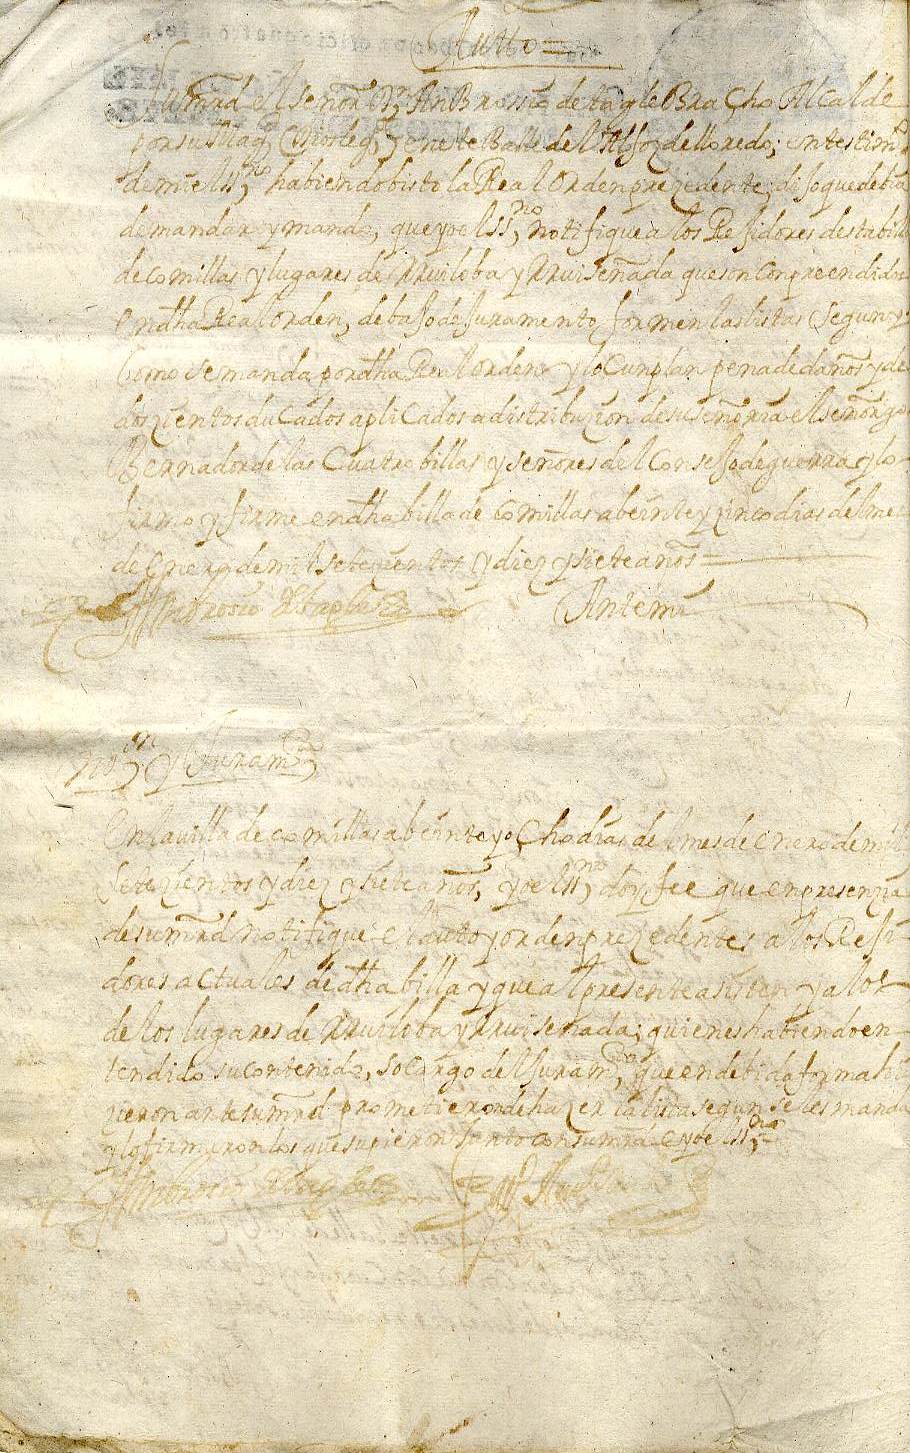 Autto =
Su mrd el señor Dn Anbrossio de tagle Bracho Alcalde
por su Mag, (Dios leg,) en este Balle del Alfoz de lloredo; en testimo
de mi el ssno habiendo bisto la Real Orden prezedente; dijo que debia
de mandar y mando, que yo el ssno notifique a los Rejidores desta bill
de comillas y lugares de Rruiloba y Rruiseñada que son Conpreendidos
En dha Real orden, debajo de Juramento, formen las listas Segun y
Como se manda por dha Real Orden y lo Cunplan pena de daños y de
doszientos duCados apliCados a distribuzion de su señoria el señor go
Bernador de las Cuatro billas y señores del Consejo de guerra y lo
firmo y firme en dha billa de Comillas a beinte y zinco dias del mes
de Enero de mil setezientos y diez y siete años
Ambrosio de tagle Antemi
noon y Juramto
En la villa de comillas a beinte y oCho dias del mes de enero de mill
Setezientos y diez y siete años, yo el ssno doy fee que en presenzia
de su mrd notifique el auto y orden prezedentes a los Reji
dores actuales de dha billa y que al presente asisten y a los
de los lugares de Rruiloba y Rruiseñada; quienes habiendo en
tendido su contenido, so cargo del Juramto, que en debida forma hi
zieron ante su mrd prometieron de hazer la lista segun se les manda
y lo firmaron los que supieron Junto con su mrd e yo el ssno
Ambrosio de tagle